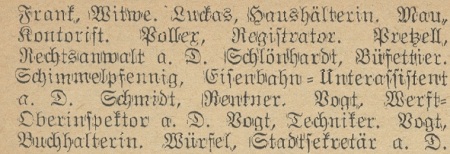 Frank, Witwe. Luckas, Haushälterin. Mau,
Kontorist. Pollex, Registrator. Pretzell,
Rechtsanwalt a. D. Schlönhardt, Büfettier.
Schimmelpfennig, Eisenbahn-Unterassistent
a. D. Schmidt, Rentner. Vogt, Werft-
Oberinspektor a. D. Vogt, Techniker. Vogt,
Buchhalterin. Würfel, Stadtsekretär a. D.